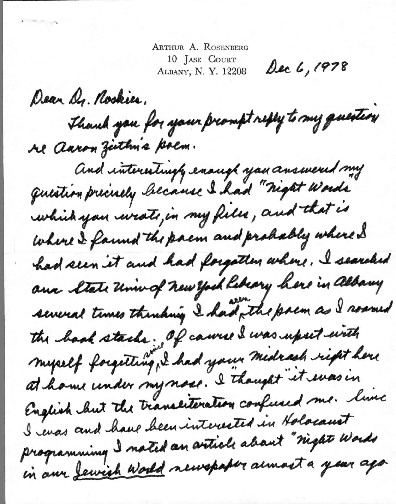 ARTHUR A. ROSENBERG
10 JASE COURT
ALBANY, N. Y. 12208
Dec 6, 1978
Dear Dr. Roskies,
Thank you for your prompt reply to my question
re Aaron Zeitlin's poem.
And interestingly enough you answered my
question precisely because I had "Night Words
which you wrote, in my files, and that is
where I found the poem and probably where I
had seen it and had forgotten where. I searched
our State Univ of New York Library here in Albany
several times thinking I had seen the poem as I roamed
the book stacks. Of course I was upset with
myself forgetting since I had your Midrash right here
at home under my nose. I "thought" it was in
English but the transliteration confused me. Since
I was and have been interested in Holocaust
programming I noted an article about "Night Words
in our Jewish World newspaper almost a year ago